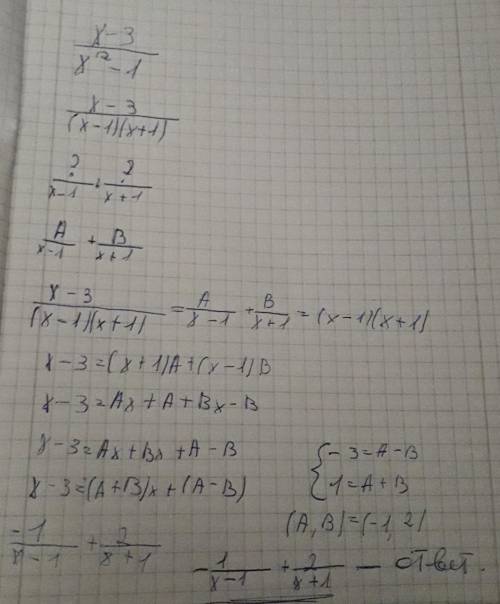 x-3 / x²-1
x-3 / (x-1)(x+1)
? / x-1 + ? / x+1
A / x-1 + B / x+1
x-3 / (x-1)(x+1) = A / x-1 + B / x+1 = (x-1)(x+1)
x-3=(x+1)A+(x-1)B
x-3=Ax+A+Bx-B
x-3=Ax+Bx+A-B
x-3=(A+B)x+(A-B)
{ -3=A-B
1=A+B
(A,B)=(-1,2)
-1 / x-1 + 2 / x+1
- 1 / x-1 + 2 / x+1 — ответ.